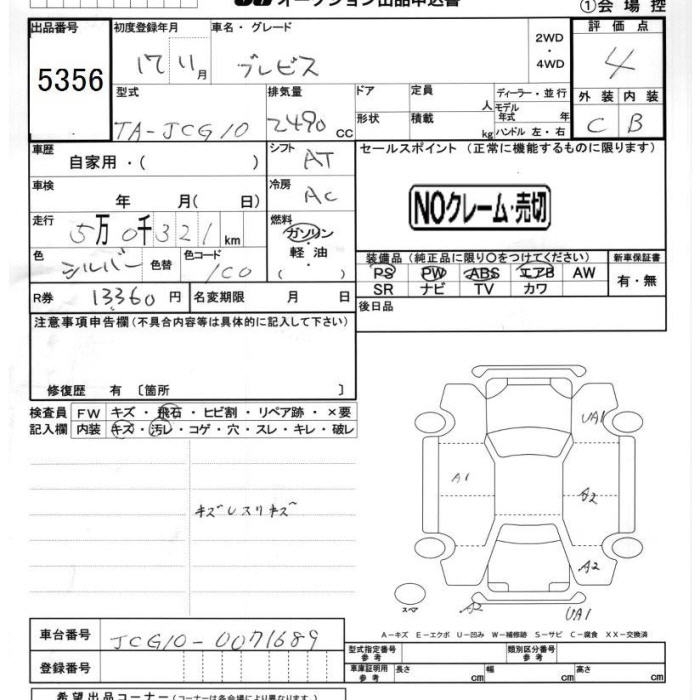 オークション出品申込書
①会場控
出品番号
5356
初度登録年月
17 11月
車名・グレード
ブレビス
2WD
・
4WD
評価点
4
型式
TA-JCG10
排気量
2490 cc
ドア
形状
定員
人
積載
kg
ディーラー・並行
モデル
年式 年
ハンドル 左・右
外装
内装
C
B
車歴
自家用・( )
シフト
AT
セールスポイント (正常に機能するものに限ります)
NOクレーム・売切
車検
年 月( 日)
冷房
AC
走行
5万0千321km
燃料
ガソリン
・
軽油
( )
色
シルバー
色替
色コード
1C0
装備品 (純正品に限り○をつけてください)
新車保証書
PS PW ABS エアB AW
SR ナビ TV カワ
有・無
R券 13360円
名変期限 月 日
後日品
注意事項申告欄(不具合内容等は具体的に記入して下さい)
修復歴 有 〔箇所 〕
検査員
記入欄
FW キズ・飛石・ヒビ割・リペア跡・×要
内装 キズ・汚レ・コゲ・穴・スレ・キレ・破レ
キズレスリキズ
UA1
A1
A2
A2
スペア
A2
UA1
A-キズ E-エクボ U-凹み W-補修跡 S-サビ C-腐食 XX-交換済
車台番号
JCG10-0071689
登録番号
型式指定番号
参考
類別区分番号
参考
車庫証明用
参考
長さ cm
幅 cm
高さ cm
希望出品コーナー(コーナーは各会場により異なります。)